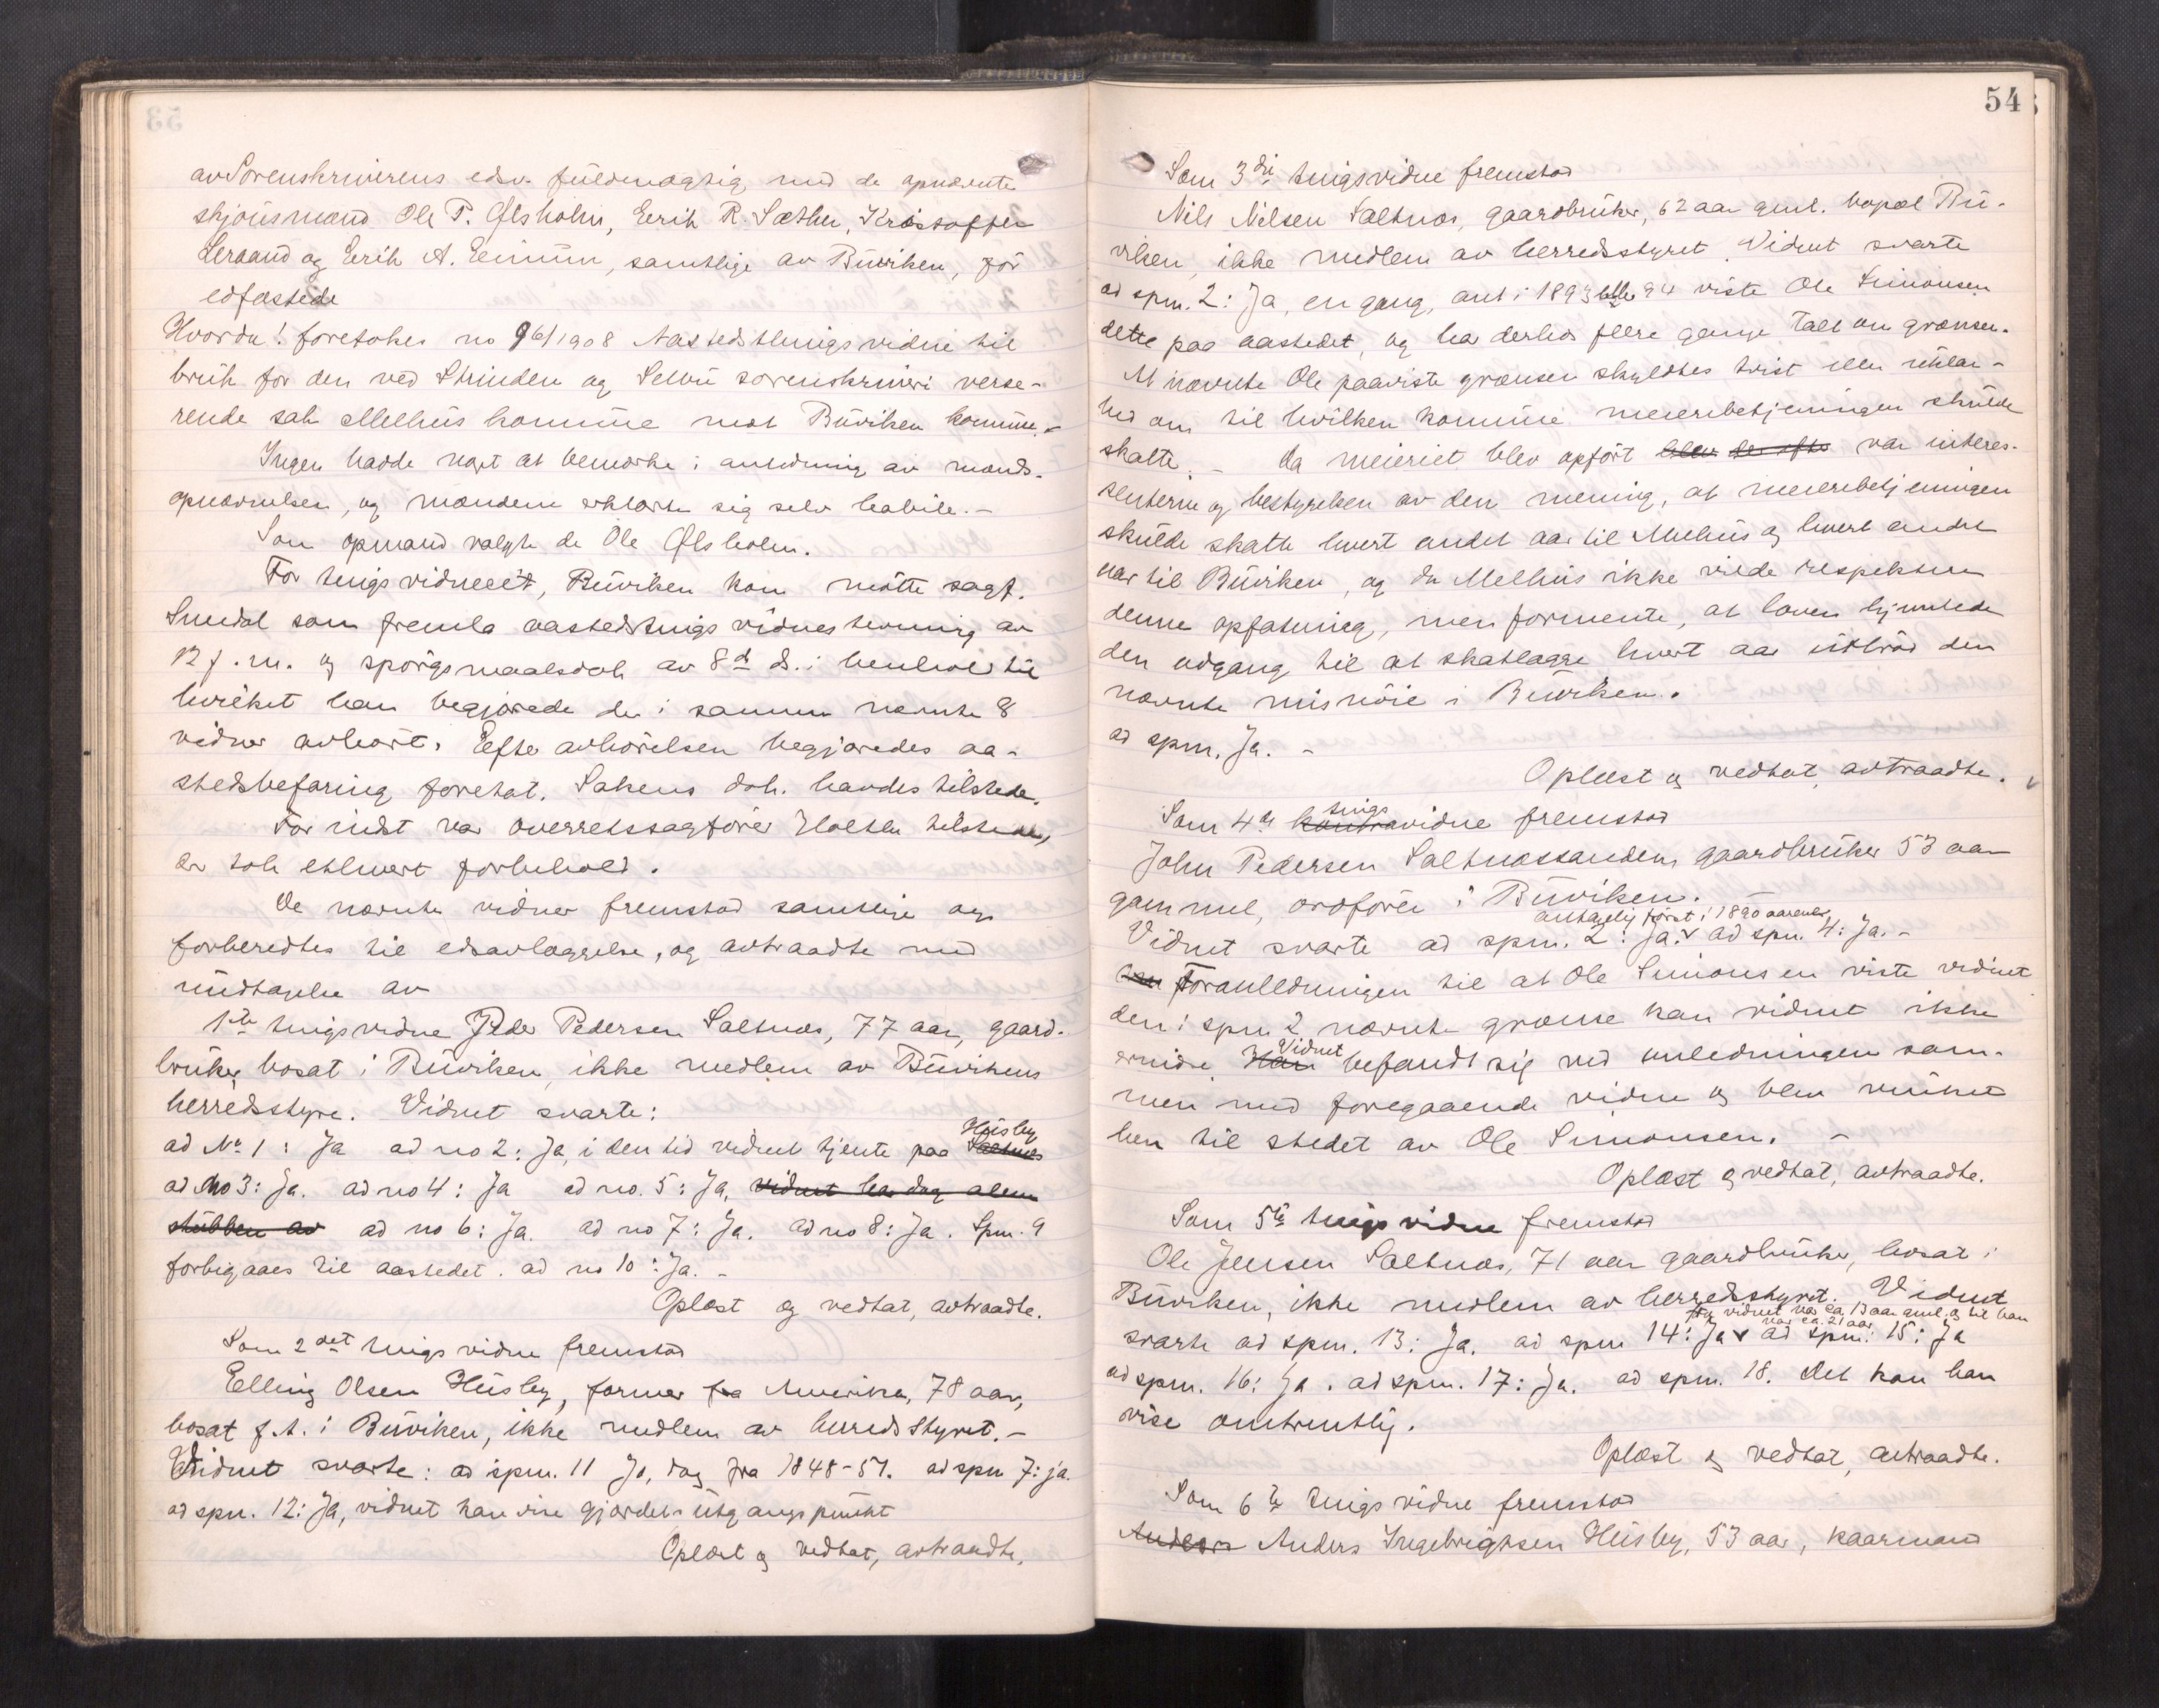 av Sorenskriverens edsv. fuldmægtig med de opnævnte
skjønsmænd Ole P. Ølsholm, Eerik R. Sæther, Kristoffer
Leraand og Eerik A. Eeinum, samtlige av Buviken, før
edfæstede
Hvorda! foretokes no 96/1908 Aastedsthingsvidne til
bruk for den ved Strinden og Selbu sorenskriveri verse-
rende sak Melhus komune mot Buviken komune.-
Ingen hadde noget at bemerke i anledning av mands-
opnævnelsen, og mændene erklærte sig selv habile.-
Som opmand valgte de Ole Ølsholm.
For tingsvidneeet, Buviken kom møtte sagf.
Smedal som fremla aastedstings vidnesstevning av
12 f.m. og spørgsmaalsdok av 8d ds. i henhold til
hvilket han begjærede de i samme nævnte 8
vidner avhørt. Eefter avhørelsen begjæredes aa-
stedsbefaring foretat. Sakens dok. havdes tilstede.
For indst var overretssagfører Holtan tilstede,
der tok ethvert forbehold.
De nævnte vidner fremstod samtlige og
forberedtes til edsavlæggelse, og avtraadte med
undtagelse av
1ste tingsvidne Peder Pedersen Saltnes, 77 aar, gaard-
bruker bosat i Buviken, ikke medlem av Buvikens
herredsstyre. Vidnet svarte:
Husby
ad No 1: Ja ad no 2: Ja, i den tid vidnet tjente paa Saltnes
ad No 3: Ja. ad no 4: Ja ad no. 5: Ja, vidnet har dog alene
stubben av ad no 6: Ja. ad no 7: Ja. ad no 8: Ja. Spm. 9
forbigaaes til aastedet. ad no 10: Ja.-
Oplæst og vedtat, avtraadte.
Som 2det tingsvidne fremstod
Elling Olsen Husby, farmer fra Amerika, 78 aar,
bosat f.t. i Buviken, ikke medlem av herredsstyret.-
Vidnet svarte: ad spm. 11 Ja, dog fra 1848-51. ad spm 7: ja.
ad spm. 12: Ja, vidnet kan vise gjærdets utgangspunkt
Oplæst og vedtat, avtraadte.
54
Som 3die tingsvidne fremstod
Nils Nilsen Saltnes, gaardbruker, 62 aar gml. bopæl Bu-
viken, ikke medlem av herredsstyret. Vidnet svarte
ad spm. 2: Ja, en gang, ant i 1893 eller 94 viste Ole Simonsen
dette paa aastedet, og har derhos flere gange talt om grænsen.
At nævnte Ole paaviste grænsen skyldtes tvist eller uklar-
hed om til hvilken komune meieribetjeningen skulde
skatte.- Da meieriet blev opført blev der efter var interes-
senterne og bestyrelsen av den mening, at meieribetjeningen
skulde skatte hvert andet aar til Melhus og hvert andet
aar til Buviken, og da Melhus ikke vilde respektere
denne opfatning, men formente, at loven hjemlede
den adgang til at skatlægge hvert aar istod den
nævnte misnøie i Buviken.
ad spm. Ja.-
Oplæst og vedtat, avtraadte.
tings
Som 4de kontravidne fremstod
John Pedersen Saltnessanden gaardbruker 53 aar
gammel, ordfører i Buviken.
antagelig først i 1890 aarene
Vidnet svarte ad spm. 2: Ja. v ad spm. 4: Ja.-
Foranledningen til at Ole Simonsen viste vidnet
den i spm 2 nævnte grænse kan vidnet ikke
Vidnet
erindre. Han befandt sig ved anledningen sam-
men med foregaaende vidne og blev vinket
hen til stedet av Ole Simonsen.-
Oplæst og vedtat, avtraadte.
Som 5te tingsvidne fremstod
Ole Jensen Saltnes, 71 aar gaardbruker, bosat i
Buviken, ikke medlem av herredsstyret. Vidnet
fra vidnet var ca. 13 aar gml. og til han
var ca. 21 aar
svarte ad spm. 13: Ja. ad spm 14: Ja v ad spm: 15: Ja
ad spm. 16: Ja. ad spm. 17: Ja. ad spm. 18. Det kan han
vise omtrentlig.
Oplæst og vedtat, avtraadte.
Som 6te tingsvidne fremstod
Anders Ingebrigtsen Husby, 53 aar, kaarmand